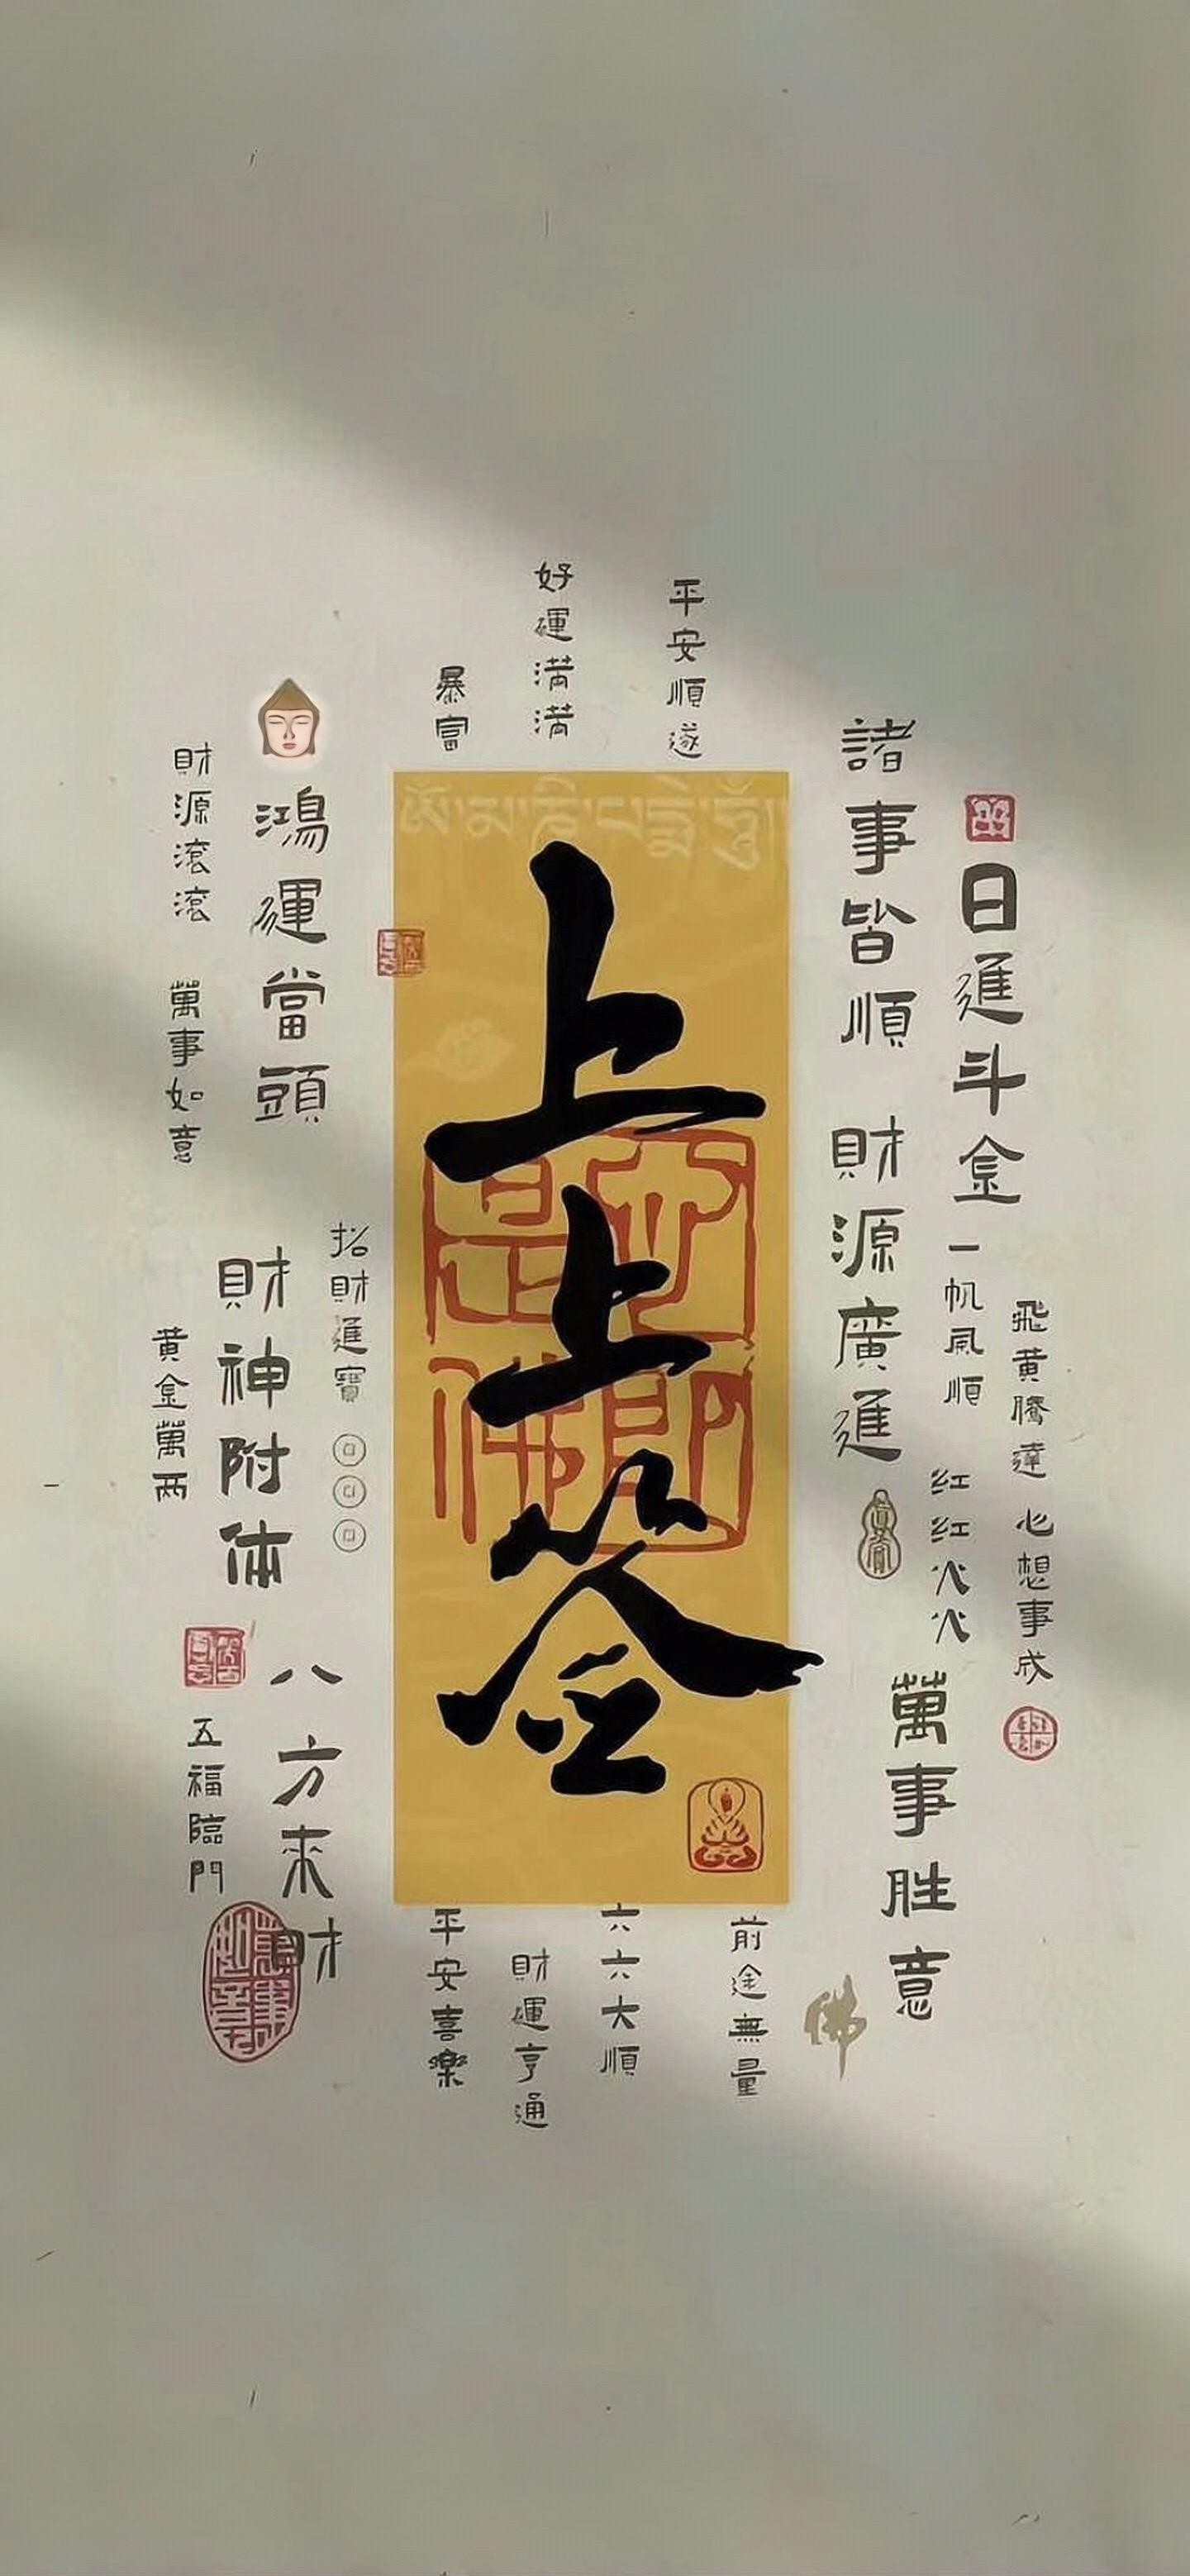 好運满满
平安順遂
暴富
諸事皆順
財源廣進
日進斗金
一帆风順
飛黄騰達
心想事成
红红火火
萬事胜意
財源滾滾
鴻運當頭
萬事如意
招財進寶
財神附体
黄金萬两
八方来財
五福臨門
ཨོཾ་མ་ཎི་པདྨེ་ཧཱུྃ
上上签
此心即是佛
平安喜樂
財運亨通
六六大順
前途無量
佛